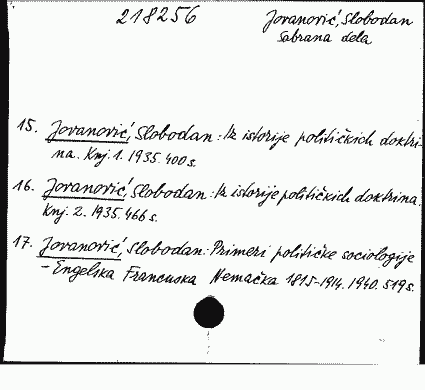 218256
Jovanović, Slobodan
Sabrana dela
15. Jovanović, Slobodan: Iz istorije političkich doktri-
na. Knj. 1. 1935. 400 s.
16. Jovanović, Slobodan: Iz istorije političkich doktrina.
Knj. 2. 1935. 466 s.
17. Jovanović, Slobodan: Primeri političke sociologije
- Engelska Francuska Nemačka 1815-1914. 1940. 519 s.